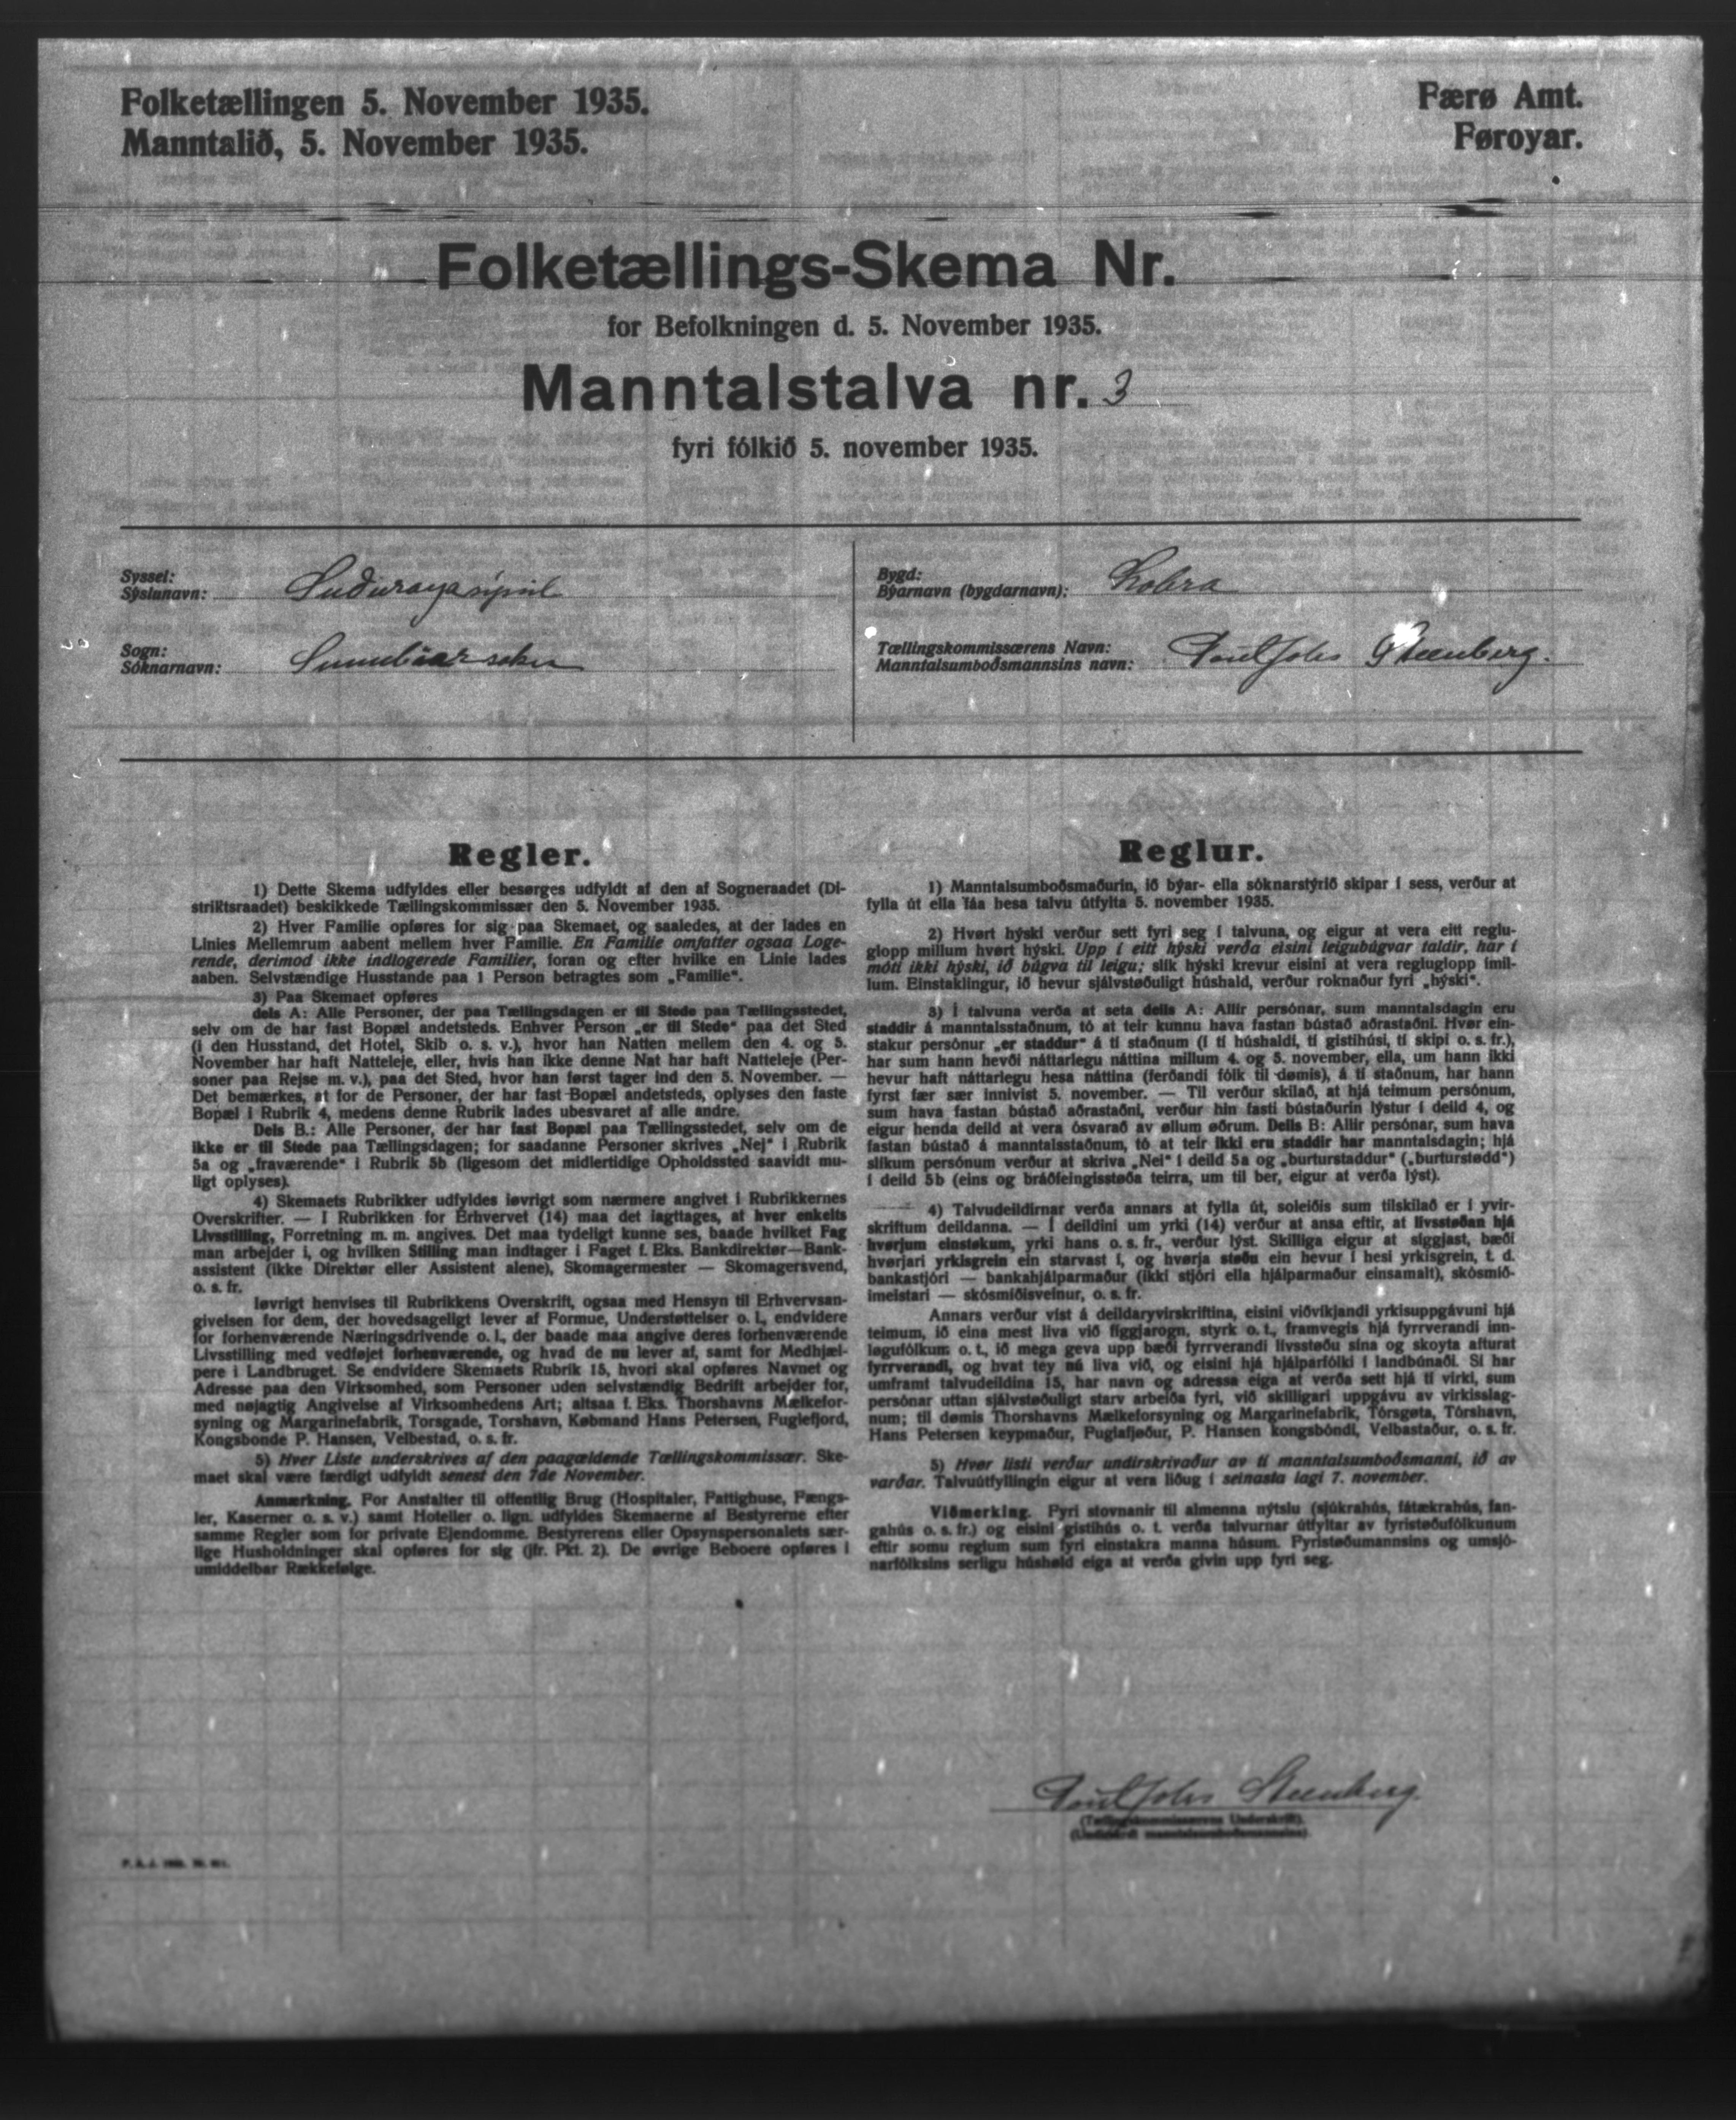 Folketællingen 5. November 1935.
Manntalið, 5. November 1935.
Færø Amt.
Føroyar.
Folketællings-Skema Nr.
for Befolkningen d. 5. November 1935.
Manntalstalva nr. 3
fyri fólkið 5. november 1935.
Syssel:
Sýslunavn: Suðuroyasýsil
Sogn:
Sóknarnavn: Sumbiarsokn
Bygd:
Býarnavn (bygdarnavn): Lobra
Tællingskommissærens Navn:
Manntalsumboðsmannsins navn: Poul Johs Steenberg.
Regler.
1) Dette Skema udfyldes eller besørges udfyldt af den af Sogneraadet (Di-
striktsraadet) beskikkede Tællingskommissær den 5. November 1935.
2) Hver Familie opføres for sig paa Skemaet, og saaledes, at der lades en
Linies Mellemrum aabent mellem hver Familie. En Familie omfatter ogsaa Loge-
rende, derimod ikke indlogerede Familier, foran og efter hvilke en Linie lades
aaben. Selvstændige Husstande paa 1 Person betragtes som „Familie“.
3) Paa Skemaet opføres
dels A: Alle Personer, der paa Tællingsdagen er til Stede paa Tællingsstedet,
selv om de har fast Bopæl andetsteds. Enhver Person „er til Stede“ paa det Sted
(i den Husstand, det Hotel, Skib o. s. v.), hvor han Natten mellem den 4. og 5.
November har haft Natteleje, eller, hvis han ikke denne Nat har haft Natteleje (Per-
soner paa Rejse m. v.), paa det Sted, hvor han først tager ind den 5. November. —
Det bemærkes, at for de Personer, der har fast Bopæl andetsteds, oplyses den faste
Bopæl i Rubrik 4, medens denne Rubrik lades ubesvaret af alle andre.
Dels B.: Alle Personer, der har fast Bopæl paa Tællingsstedet, selv om de
ikke er til Stede paa Tællingsdagen; for saadanne Personer skrives „Nej“ i Rubrik
5a og „fraværende“ i Rubrik 5b (ligesom det midlertidige Opholdssted saavidt mu-
ligt oplyses).
4) Skemaets Rubrikker udfyldes iøvrigt som nærmere angivet i Rubrikkernes
Overskrifter. — I Rubrikken for Erhvervet (14) maa det iagttages, at hver enkelts
Livsstilling, Forretning m. m. angives. Det maa tydeligt kunne ses, baade hvilket Fag
man arbejder i, og hvilken Stilling man indtager i Faget f. Eks. Bankdirektør—Bank-
assistent (ikke Direktør eller Assistent alene), Skomagermester — Skomagersvend,
o. s. fr.
Iøvrigt henvises til Rubrikkens Overskrift, ogsaa med Hensyn til Erhvervsan-
givelsen for dem, der hovedsageligt lever af Formue, Understøttelser o. l., endvidere
for forhenværende Næringsdrivende o. l., der baade maa angive deres forhenværende
Livsstilling med vedføjet forhenværende, og hvad de nu lever af, samt for Medhjæl-
pere i Landbruget. Se endvidere Skemaets Rubrik 15, hvori skal opføres Navnet og
Adresse paa den Virksomhed, som Personer uden selvstændig Bedrift arbejder for,
med nøjagtig Angivelse af Virksomhedens Art; altsaa f. Eks. Thorshavns Mælkefor-
syning og Margarinefabrik, Torsgade, Torshavn, Købmand Hans Petersen, Fuglefjord,
Kongsbonde P. Hansen, Velbestad, o. s. fr.
5) Hver Liste underskrives af den paagældende Tællingskommissær. Ske-
maet skal være færdigt udfyldt senest den 7de November.
Anmærkning. For Anstalter til offentlig Brug (Hospitaler, Fattighuse, Fængs-
ler, Kaserner o. s. v.) samt Hoteller o. lign. udfyldes Skemaerne af Bestyrerne efter
samme Regler som for private Ejendomme. Bestyrerens eller Opsynspersonalets sær-
lige Husholdninger skal opføres for sig (jfr. Pkt. 2). De øvrige Beboere opføres i
umiddelbar Rækkefølge.
Reglur.
1) Manntalsumboðsmaðurin, ið býar- ella sóknarstýrið skipar í sess, verður at
fylla út ella fáa hesa talvu útfylta 5. november 1935.
2) Hvørt hýski verður sett fyri seg í talvuna, og eigur at vera eitt reglu-
glopp millum hvørt hýski. Upp í eitt hýski verða eisini leigubúgvar taldir, har í
móti ikki hýski, ið búgva til leigu; slík hýski krevur eisini at vera regluglopp ímil-
lum. Einstaklingur, ið hevur sjálvstøðuligt húshald, verður roknaður fyri „hýski“.
3) Í talvuna verða at seta dells A: Allir persónar, sum manntalsdagin eru
staddir á manntalsstaðnum, tó at teir kunnu hava fastan bústað aðrastaðni. Hvør ein-
stakur persónur „er staddur“ á tí staðnum (í tí húshaldi, tí gistihúsi, tí skipi o. s. fr.),
har sum hann hevði náttarlegu náttina millum 4. og 5. november, ella, um hann ikki
hevur haft náttarlegu hesa náttina (ferðandi fólk til dømis), á tí staðnum, har hann
fyrst fær sær innivist 5. november. — Til verður skilað, at hjá teimum persónum,
sum hava fastan bústað aðrastaðni, verður hin fasti bústaðurin lýstur í deild 4, og
eigur henda deild at vera ósvarað av øllum øðrum. Dells B: Allir persónar, sum hava
fastan bústað á manntalsstaðnum, tó at teir ikki eru staddir har manntalsdagin; hjá
slíkum persónum verður at skriva „Nei“ í deild 5a og „burturstaddur“ („burturstødd“)
í deild 5b (eins og bráðfeingisstøða teirra, um til ber, eigur at verða lýst).
4) Talvudeildirnar verða annars at fylla út, soleiðis sum tilskilað er í yvir-
skriftum deildanna. — Í deildini um yrki (14) verður at ansa eftir, at livsstøðan hjá
hvørjum einstøkum, yrki hans o. s. fr., verður lýst. Skilliga eigur at siggjast, bæði
hvørjari yrkisgrein ein starvast í, og hvørja støðu ein hevur í hesi yrkisgrein, t. d.
bankastjóri — bankahjálparmaður (ikki stjóri ella hjálparmaður einsamalt), skósmið-
imeistari — skósmiðisveinur, o. s. fr.
Annars verður vist á deildaryvirskriftina, eisini viðvíkjandi yrkisuppgávuni hjá
teimum, ið eina mest liva við figgjarogn, styrk o. t., framvegis hjá fyrrverandi inn-
løgufólkum o. t., ið mega geva upp bæði fyrrverandi livsstøðu sína og skoyta afturat
fyrrverandi, og hvat tey nú liva við, og eisini hjá hjálparfólki í landbúnaði. Sí har
umframt talvudeildina 15, har navn og adressa eiga at verða sett hjá tí virki, sum
persónar uttan sjálvstøðuligt starv arbeiða fyri, við skilligari uppgávu av virkisslag-
num; til dømis Thorshavns Mælkeforsyning og Margarinefabrik, Tórsgøta, Tórshavn,
Hans Petersen keypmaður, Fuglafjøður, P. Hansen kongsbóndi, Velbastaður, o. s. fr.
5) Hvør listi verður undirskrivaður av tí manntalsumboðsmanni, ið av
varðar. Talvuútfyllingin eigur at vera liðug í seinasta lagi 7. november.
Viðmerking. Fyri stovnanir til almenna nýtslu (sjúkrahús, fátækrahús, fan-
gahús o. s. fr.) og eisini gistihús o. t. verða talvurnar útfyltar av fyristøðufólkunum
eftir somu reglum sum fyri einstakra manna húsum. Fyristøðumannsins og umsjó-
narfólksins serligu húshold eiga at verða givin upp fyri seg.
Poul Johs Steenberg.
(Tællingskommissærens Underskrift).